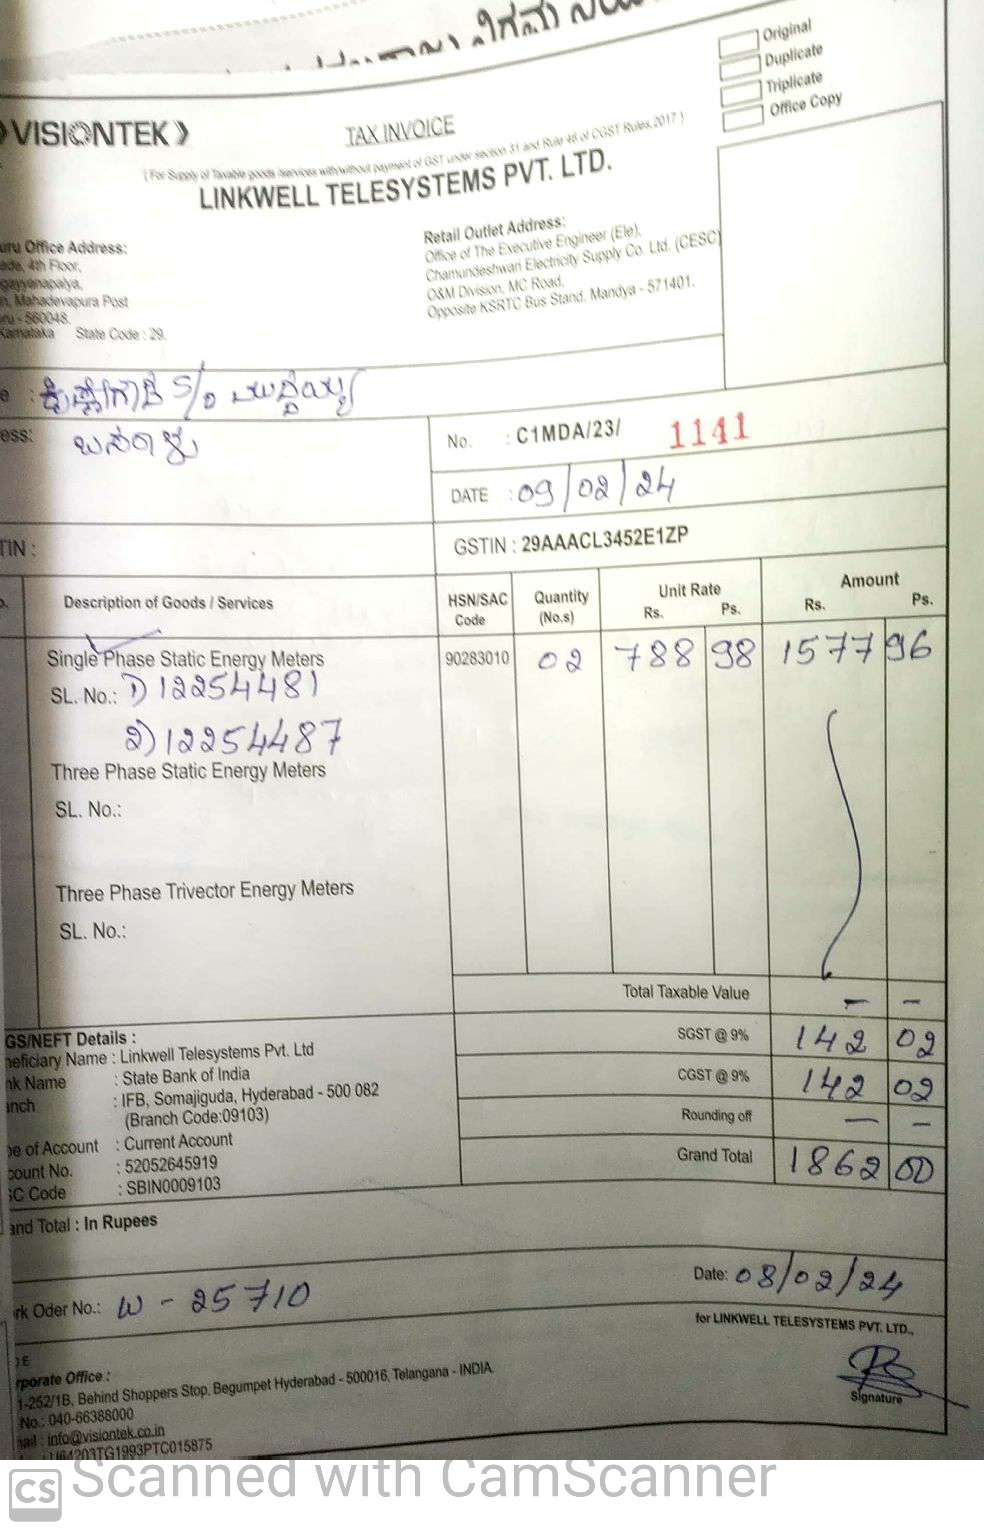 Original
Duplicate
Triplicate
Office Copy
VISIONTEK
TAX INVOICE
( For Supply of Taxable goods /services with/without payment of GST under section 31 and Rule 46 of CGST Rules,2017 )
LINKWELL TELESYSTEMS PVT. LTD.
Office Address:
4th Floor,
Mahadevapura Post
560048.
Karnataka State Code : 29.
Retail Outlet Address:
Office of The Executive Engineer (Ele),
Chamundeshwari Electricity Supply Co. Ltd. (CESC)
O&M Division, MC Road,
Opposite KSRTC Bus Stand, Mandya - 571401.
S/o
No. : C1MDA/23/ 1141
DATE : 09/02/24
TIN :
GSTIN : 29AAACL3452E1ZP
Description of Goods / Services HSN/SAC Code Quantity (No.s) Unit Rate Rs. Ps. Amount Rs. Ps.
Single Phase Static Energy Meters 90283010 02 788 98 1577 96
SL. No.: 1) 12254481
2) 12254487
Three Phase Static Energy Meters
SL. No.:
Three Phase Trivector Energy Meters
SL. No.:
Total Taxable Value — —
GS/NEFT Details :
SGST @ 9% 142 02
eficiary Name : Linkwell Telesystems Pvt. Ltd
nk Name : State Bank of India
CGST @ 9% 142 02
anch : IFB, Somajiguda, Hyderabad - 500 082
(Branch Code:09103)
Rounding off — —
pe of Account : Current Account
count No. : 52052645919
Grand Total 1862 00
SC Code : SBIN0009103
and Total : In Rupees
rk Oder No.: W - 25710
Date: 08/02/24
for LINKWELL TELESYSTEMS PVT. LTD.,
rporate Office :
1-252/1B, Behind Shoppers Stop, Begumpet Hyderabad - 500016, Telangana - INDIA
No.: 040-66388000
ail : info@visiontek.co.in
U64203TG1993PTC015875
Signature
CS Scanned with CamScanner